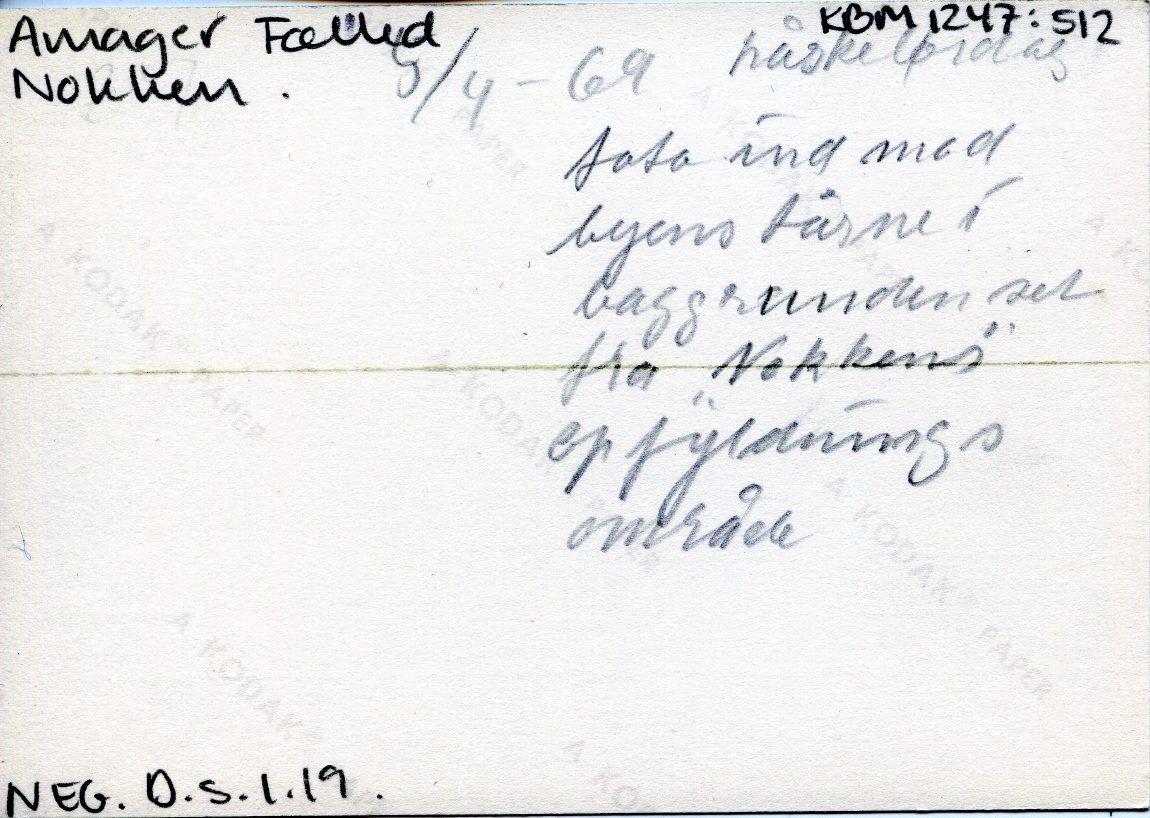 Amager Fælled
Nokken.
KBM 1247:512
5/4-69 påskelørdag
foto ind mod
byens tårne i
baggrunden set
fra "Nokkens"
opfyldnings
område
NEG. D.S.1.19.
A KODAK PAPER
A KODAK PAPER
A KODAK PAPER
A KODAK PAPER